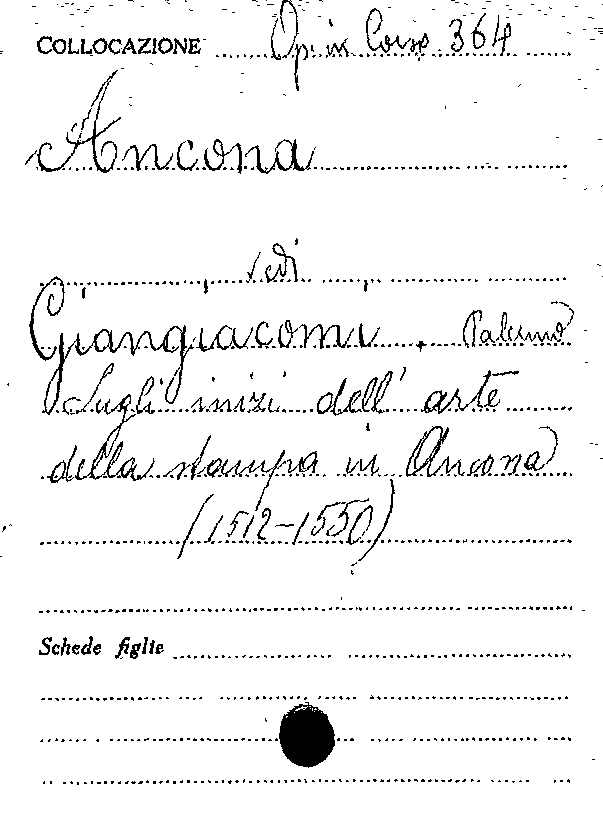 COLLOCAZIONE Op. in Cors 364
Ancona
vedi
Giangiacomi. Palermo
Sugli inizi dell' arte
della stampa in Ancona
(1512-1550)
Schede figlie